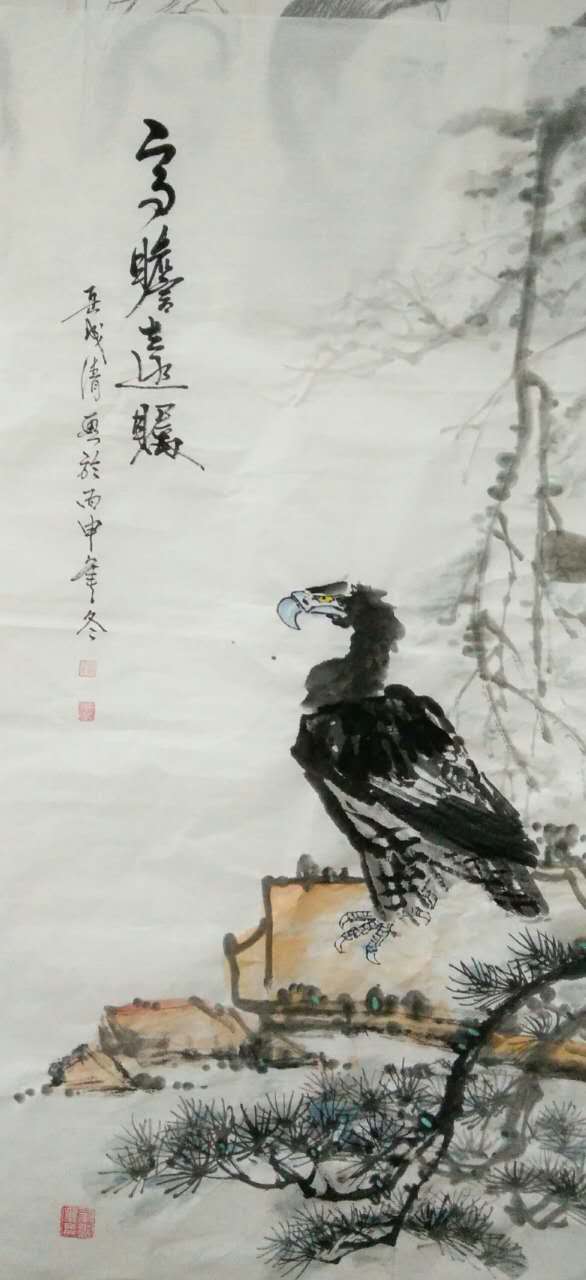 高瞻遠矚
岳成清畫於丙申年冬